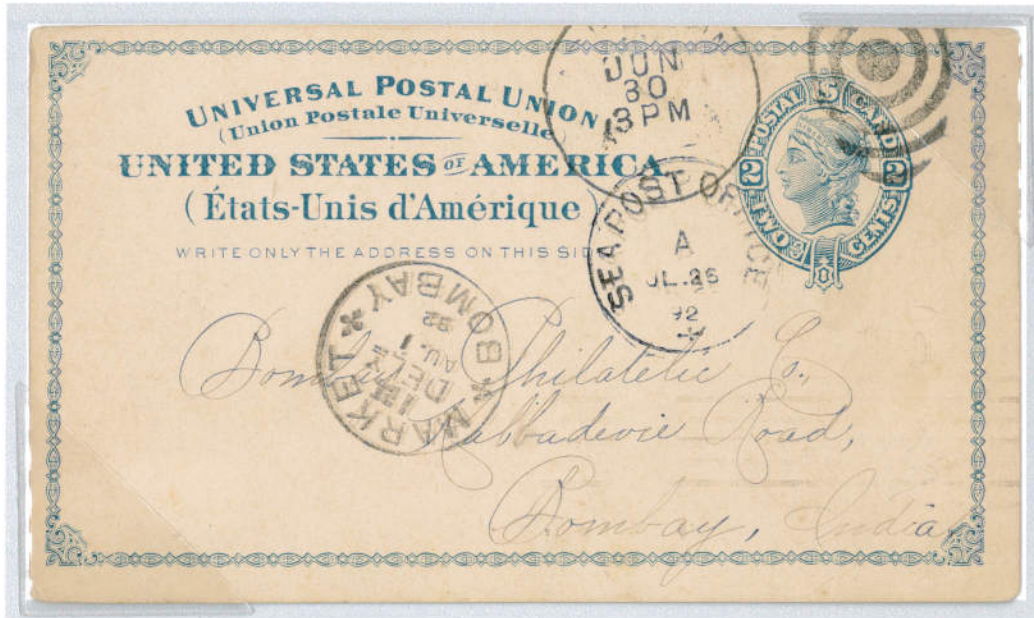 UNIVERSAL POSTAL UNION
(Union Postale Universelle)
UNITED STATES OF AMERICA
(États-Unis d'Amérique)
WRITE ONLY THE ADDRESS ON THIS SIDE
JUN
30
3 PM
U.S. POSTAL CARD
2 2
TWO CENTS
SEA POST OFFICE
A
JL. 26
92
MARKET * BOMBAY *
DEL
AU. 1
92
Bombay Philatelic Co.,
Kalbadevie Road,
Bombay, India